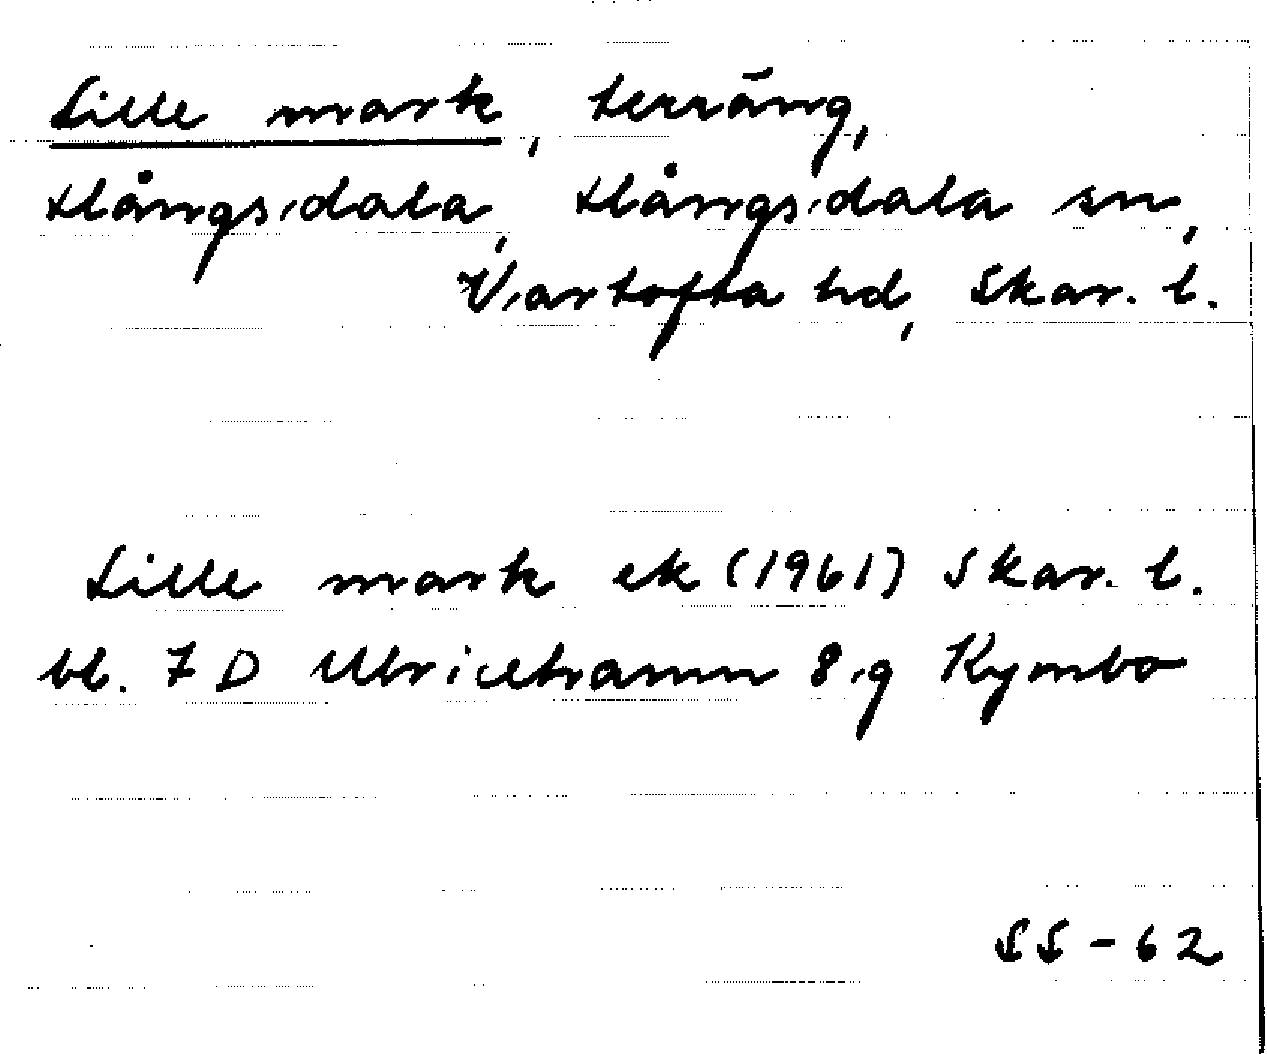 Lille mark, terräng,
Hångsdala, Hångsdala sn,
Vartofta hd, Skar. l.
Lille mark ek (1961) Skar. l.
bl. 7 D Ulricehamn 8 g Kymbo
SS-62